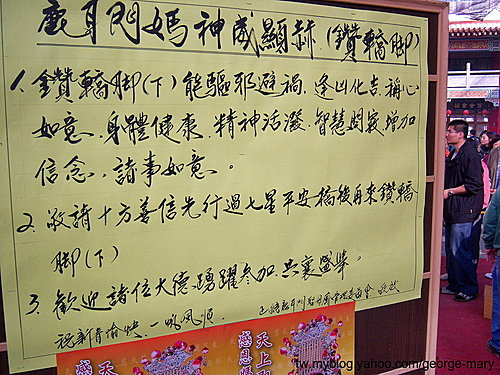 鹿耳門媽神威顯赫(鑽轎脚)
1. 鑽轎脚(下)能驅邪避禍.逢凶化吉.稱心
如意.身體健康.精神活潑.智慧開竅增加
信念.諸事如意。
2. 敬請十方善信先行過七星平安橋後再來鑽轎
脚(下)
3. 歡迎諸位大德踴躍參加.共襄盛舉。
祝新年愉快.一帆風順.
天上
感恩
tw.myblog.yahoo.com/george-mary